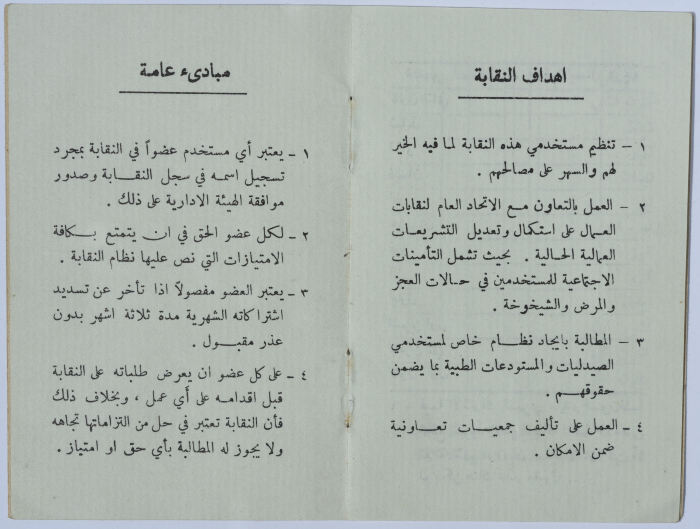 اهداف النقابة
١ – تنظيم مستخدمي هذه النقابة لما فيه الخير
لهم والسهر على مصالحهم .
٢ – العمل بالتعاون مع الاتحاد العام لنقابات
العمال على استكمال وتعديل التشريعات
العمالية الحالية . بحيث تشمل التأمينات
الاجتماعية للمستخدمين في حالات العجز
والمرض والشيخوخة .
٣ – المطالبة بايجاد نظام خاص لمستخدمي
الصيدليات والمستودعات الطبية بما يضمن
حقوقهم .
٤ – العمل على تأليف جمعيات تعاونية
ضمن الامكان .
مبادىء عامة
١ – يعتبر أي مستخدم عضواً في النقابة بمجرد
تسجيل اسمه في سجل النقابة وصدور
موافقة الهيئة الادارية على ذلك .
٢ – لكل عضو الحق في ان يتمتع بكافة
الامتيازات التي نص عليها نظام النقابة .
٣ – يعتبر العضو مفصولاً اذا تأخر عن تسديد
اشتراكاته الشهرية مدة ثلاثة اشهر بدون
عذر مقبول .
٤ – على كل عضو ان يعرض طلباته على النقابة
قبل اقدامه على أي عمل ، وبخلاف ذلك
فأن النقابة تعتبر في حل من التزاماتها تجاهه
ولا يجوز له المطالبة بأي حق او امتياز .